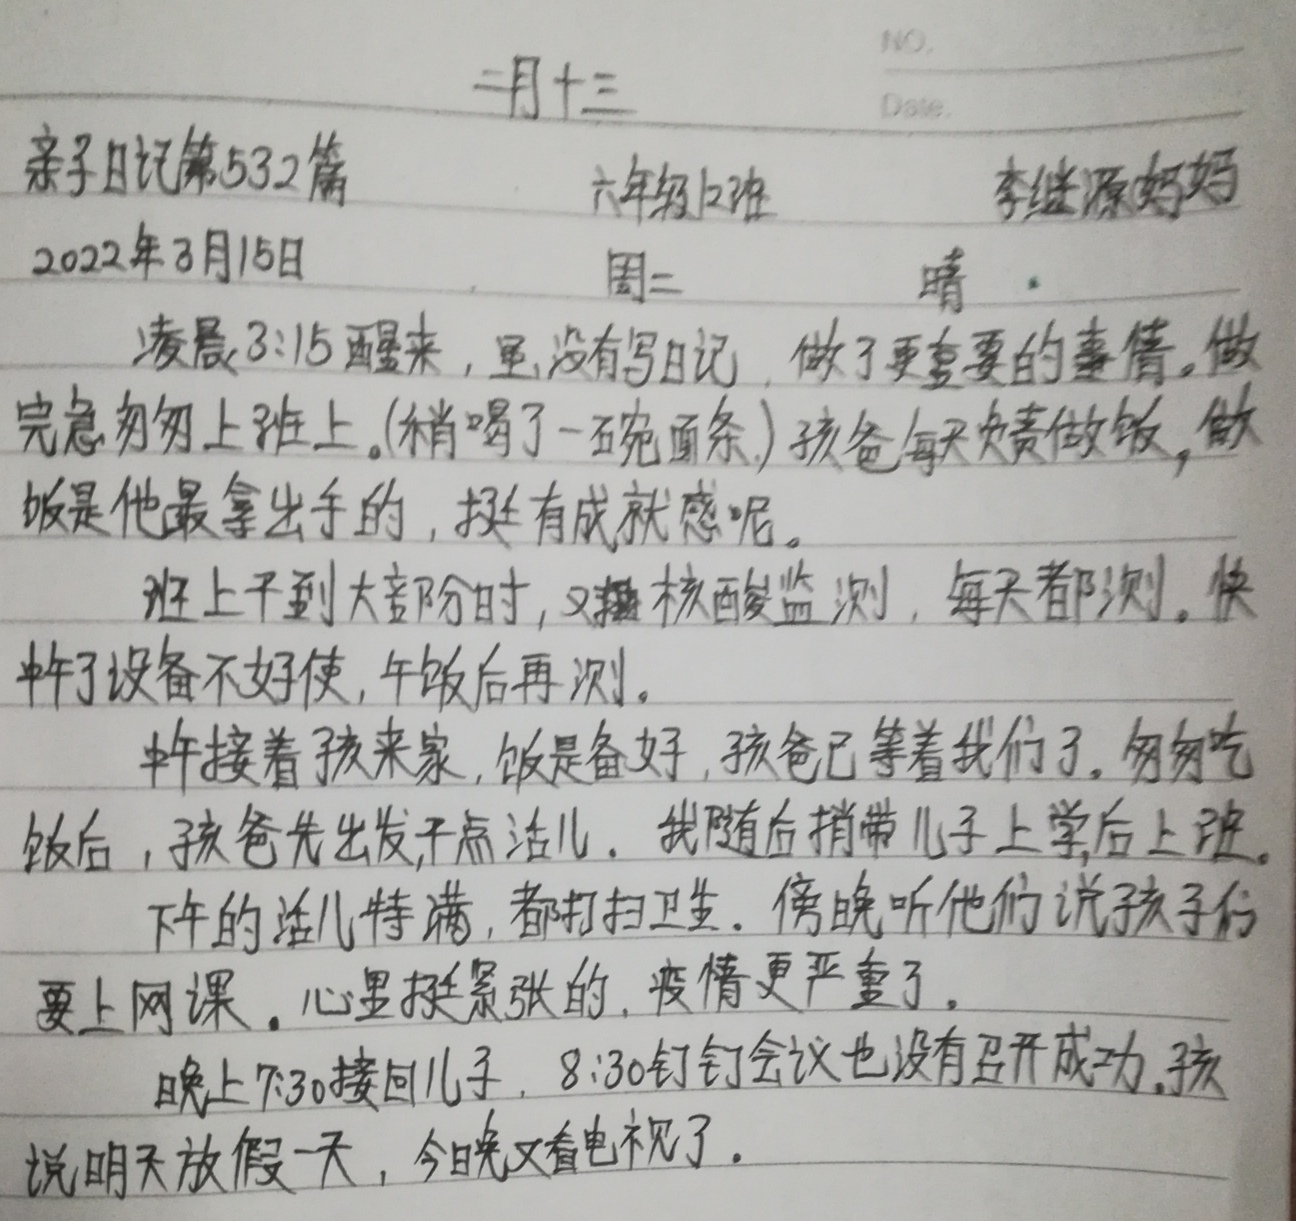 NO.
二月十三
Date.
亲子日记第532篇 六年级12班 李继源妈妈
2022年3月15日 周二 晴
凌晨3:15醒来，虽没有写日记，做了更重要的事情。做
完急匆匆上班上。(稍喝了一碗面条.)孩爸每天负责做饭，做
饭是他最拿出手的，挺有成就感呢。
班上干到大部分时，又核酸监测，每天都测。快
中午了设备不好使，午饭后再测。
中午接着孩来家，饭是备好，孩爸已等着我们了。匆匆吃
饭后，孩爸先出发，干点活儿．我随后捎带儿子上学，后上班。
下午的活儿特满，都打扫卫生．傍晚听他们说孩子们
要上网课。心里挺紧张的，疫情更严重了。
晚上7:30接回儿子，8:30钉钉会议也没有召开成功．孩
说明天放假一天，今日晚又看电视了．